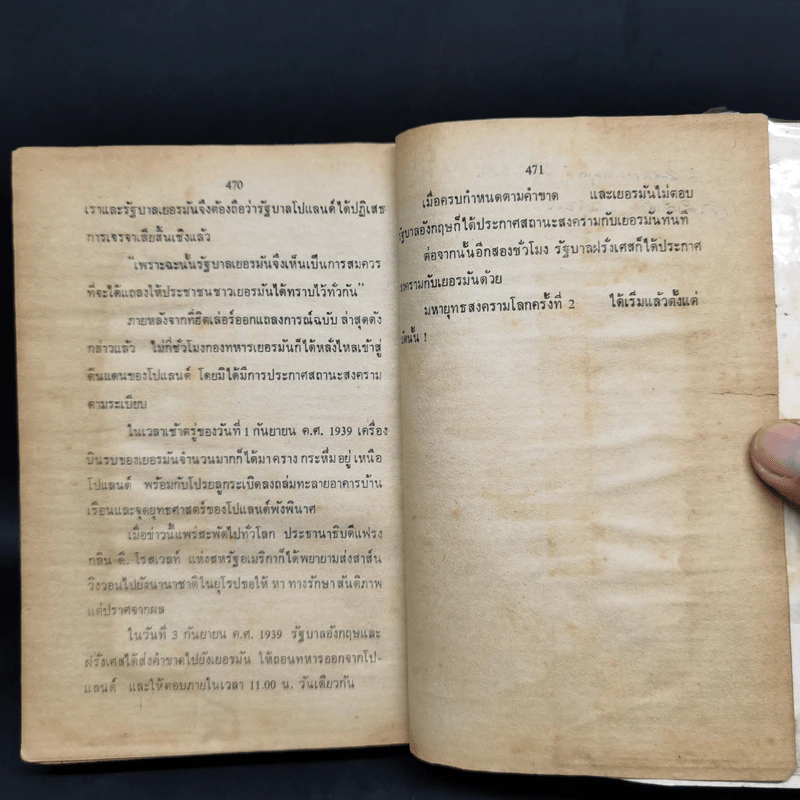 470
เราและรัฐบาลเยอรมันจึงต้องถือว่ารัฐบาลโปแลนด์ได้ปฏิเสธ
การเจรจาเสียสิ้นเชิงแล้ว
"เพราะฉะนั้นรัฐบาลเยอรมันจึงเห็นเป็นการสมควร
ที่จะได้แถลงให้ประชาชนชาวเยอรมันได้ทราบไว้ทั่วกัน"
ภายหลังจากที่ฮิตเล่อร์ออกแถลงการณ์ฉบับ ล่าสุดดัง
กล่าวแล้ว ไม่กี่ชั่วโมงกองทหารเยอรมันก็ได้หลั่งไหลเข้าสู่
ดินแดนของโปแลนด์ โดยมิได้มีการประกาศสถานะสงคราม
ตามระเบียบ
ในเวลาเช้าตรู่ของวันที่ 1 กันยายน ค.ศ. 1939 เครื่อง
บินรบของเยอรมันจำนวนมากก็ได้มา คราง กระหึ่มอยู่ เหนือ
โปแลนด์ พร้อมกับโปรยลูกระเบิดลงถล่มทะลายอาคารบ้าน
เรือนและจุดยุทธศาสตร์ของโปแลนด์พังพินาศ
เมื่อข่าวนี้แพร่สะพัดไปทั่วโลก ประธานาธิบดีแฟรง
กลิน ดี. โรสเวลท์ แห่งสหรัฐอเมริกาก็ได้พยายามส่งสาส์น
วิงวอนไปยังนานาชาติในยุโรปขอให้ หา ทางรักษา สันติภาพ
แต่ปราศจากผล
ในวันที่ 3 กันยายน ค.ศ. 1939 รัฐบาลอังกฤษและ
ฝรั่งเศสได้ส่งคำขาดไปยังเยอรมัน ให้ถอนทหารออกจากโป-
แลนด์ และให้ตอบภายในเวลา 11.00 น. วันเดียวกัน
471
เมื่อครบกำหนดตามคำขาด และเยอรมันไม่ตอบ
รัฐบาลอังกฤษก็ได้ประกาศสถานะสงครามกับเยอรมันทันที
ต่อจากนั้นอีกสองชั่วโมง รัฐบาลฝรั่งเศสก็ได้ประกาศ
สงครามกับเยอรมันด้วย
มหายุทธสงครามโลกครั้งที่ 2 ได้เริ่มแล้วตั้งแต่
บัดนั้น !